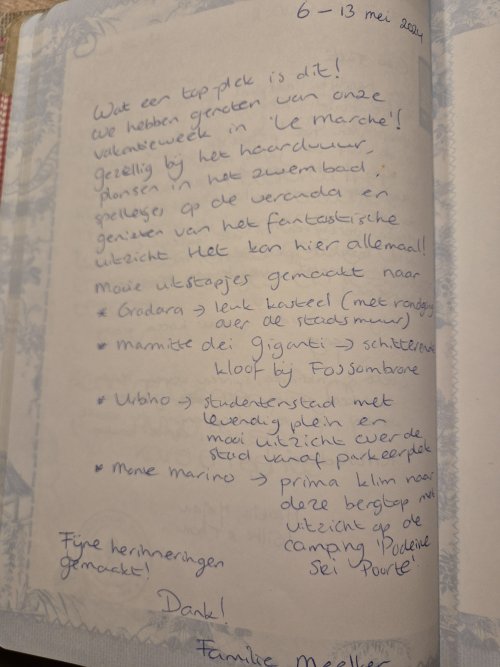 6 - 13 mei 2024
Wat een top-plek is dit!
We hebben genoten van onze
vakantieweek in 'Le Marche'!
gezellig bij het haardvuur,
plonsen in het zwembad,
spelletjes op de veranda en
genieten van het fantastische
uitzicht. Het kan hier allemaal!
Mooie uitstapjes gemaakt naar
* Gradara → leuk kasteel (met rondgang
over de stadsmuur)
* Marmitte dei Giganti → schitterende
kloof bij Fossombrone
* Urbino → studentenstad met
levendig plein en
mooi uitzicht over de
stad vanaf parkeerplek
* Monte Marino → prima klim naar
deze bergtop met
uitzicht op de
camping 'Podeine
Sei Poorte'.
Fijne herinneringen
gemaakt!
Dank!
Familie